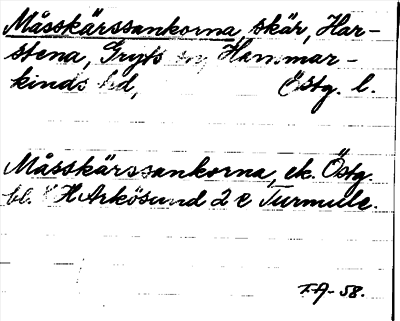 Måsskärssankorna, skär, Har-
stena, Gryts sn, Hammar-
kinds hd, Östg. l.
Måsskärssankorna, ek. Östg.
bl. 8 H Arkösund 2 e Turmulle.
T.A-58.